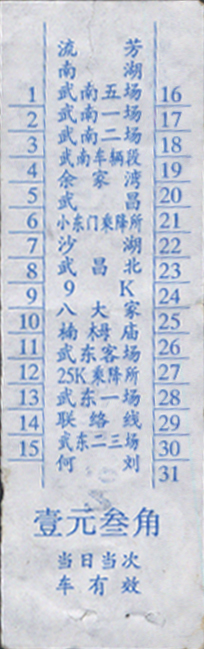 流 芳
南 湖
1 武南五场 16
2 武南一场 17
武南二场
3 武南车辆段 18
4 余家湾 19
5 武昌 20
6 小东门乘降所 21
7 沙湖 22
8 武昌北 23
9 9K 24
10 八大家 25
楠姆庙
11 武东客场 26
12 25K乘降所 27
13 武东一场 28
14 联络线 29
15 武东二三场 30
何刘 31
壹元叁角
当日当次
车有效